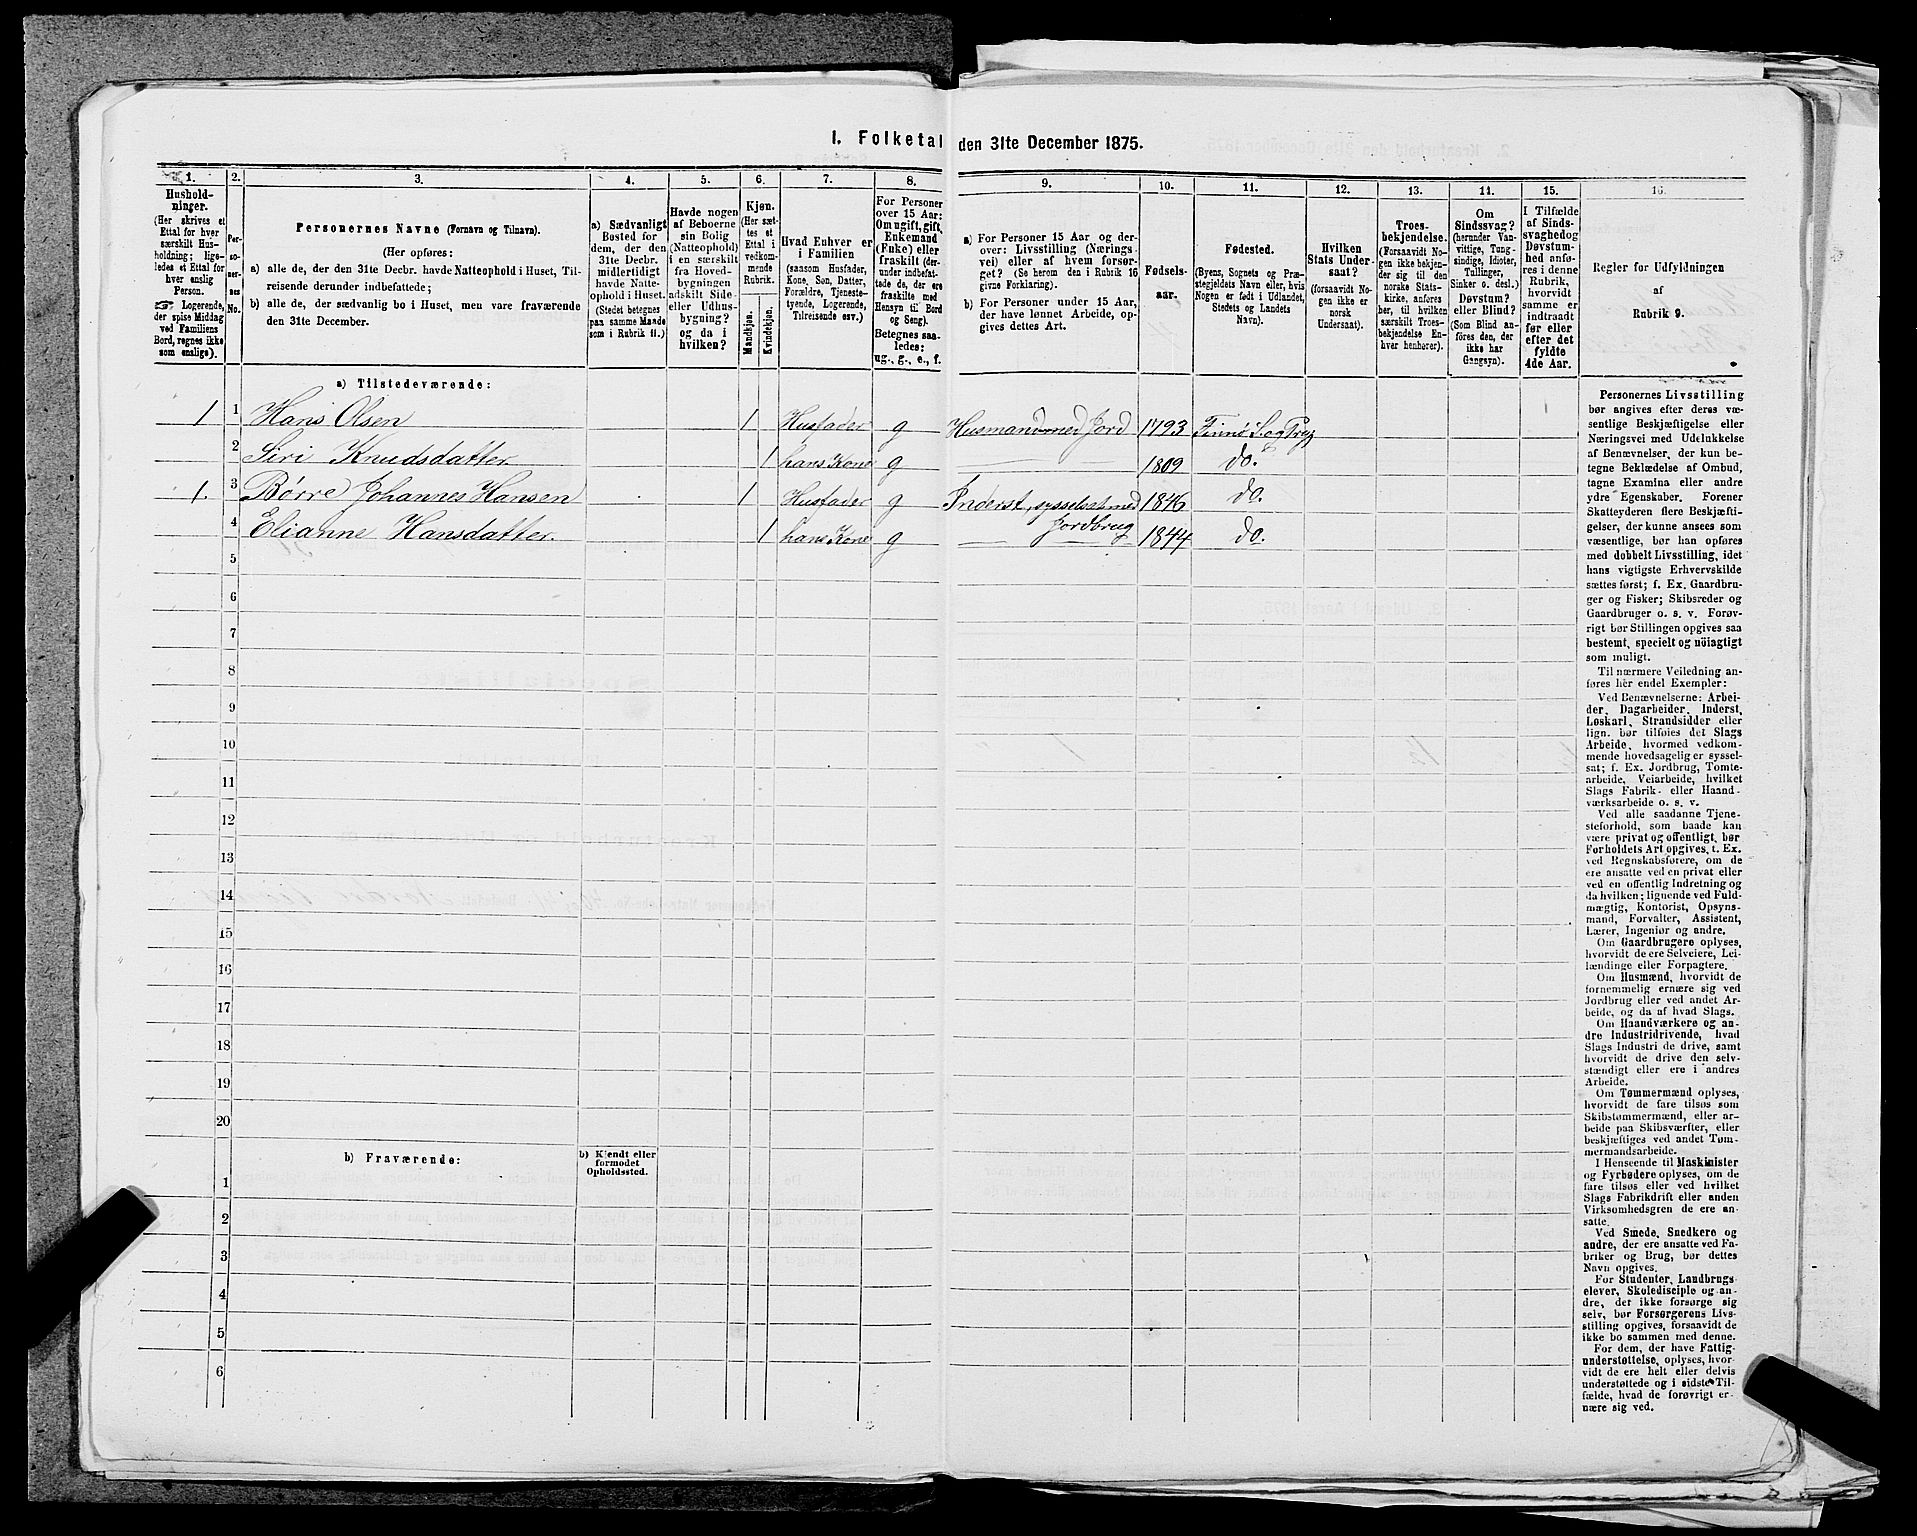 I. Folketal den 31te December 1875.
1.
Hushold-
ninger.
(Her skrives et
Ettal for hver
særskilt Hus-
holdning; lige-
ledes et Ettal for
hver enslig
Person.
☞ Logerende,
der spise Middag
ved Familiens
Bord, regnes ikke
som enslige).
2.
Per-
so-
ner-
nes
No.
3.
Personernes Navne (Fornavn og Tilnavn).
(Her opføres:
a) alle de, der den 31te Decbr. havde Natteophold i Huset, Til-
reisende derunder indbefattede;
b) alle de, der sædvanlig bo i Huset, men vare fraværende
den 31te December.
4.
a) Sædvanligt
Bosted for
dem, der den
31te Decbr.
midlertidigt
havde Natte-
ophold i Huset.
(Stedet betegnes
paa samme Maade
som i Rubrik 11.)
5.
Havde nogen
af Beboerne
sin Bolig
(Natteophold)
i en særskilt
fra Hoved-
bygningen
adskilt Side-
eller Udhus-
bygning?
og da i
hvilken?
6.
Kjøn.
(Her sæt-
tes et
Ettal i
vedkom-
mende
Rubrik.
Mandkjøn.
Kvindekjøn.
7.
Hvad Enhver er
i Familien
(saasom Husfader,
Kone, Søn, Datter,
Forældre, Tjeneste-
tyende, Logerende,
Tilreisende osv.)
8.
For Personer
over 15 Aar:
Om ugift, gift,
Enkemand
(Enke) eller
fraskilt (der-
under indbefat-
tede de, der ere
fraskilte med
Hensyn til Bord
og Seng).
Betegnes saa-
ledes:
ug., g., e., f.
9.
a) For Personer 15 Aar og der-
over: Livsstilling (Nærings
vei) eller af hvem forsør-
get? (Se herom den i Rubrik 16
givne Forklaring).
b) For Personer under 15 Aar,
der have lønnet Arbeide, op-
gives dettes Art.
10.
Fødsels-
aar.
11.
Fødested.
(Byens, Sognets og Præ-
stegjeldets Navn eller, hvis
Nogen er født i Udlandet,
Stedets og Landets
Navn).
12.
Hvilken
Stats Under-
saat?
(forsaavidt No-
gen ikke er
norsk
Undersaat).
13.
Troes-
bekjendelse.
(Forsaavidt No-
gen ikke bekjen-
der sig til den
norske Stats-
kirke, anføres
her, til hvilken
særskilt Troes-
bekjendelse En-
hver henhører).
14.
Om
Sindssvag?
(herunder Van-
vittige, Tung-
sindige, Idioter,
Tullinger,
Sinker o. desl.)
Døvstum?
eller Blind?
(Som Blind an-
føres den, der
ikke har
Gangsyn).
15.
I Tilfælde
af Sinds-
svaghed og
Døvstum-
hed anfø-
res i denne
Rubrik,
hvorvidt
samme er
indtraadt
før eller
efter det
fyldte
4de Aar.
16.
Regler for Udfyldningen
af
Rubrik 9.
a) Tilstedeværende:
1 1 Hans Olsen 1 Husfader g Husmand med Jord 1793 Finnø S. og Prgj
2 Siri Knudsdatter 1 hans Kone g 1809 do.
1. 3 Børre Johannes Hansen 1 Husfader g Inderst, sysselsat med Jordbrug 1846 do.
4 Elianne Hansdatter. 1 hans Kone g 1844 do.
5
6
7
8
9
10
11
12
13
14
15
16
17
18
19
20
b) Fraværende:
b) Kjendt eller
formodet
Opholdssted.
1
2
3
4
5
6
Personernes Livsstilling
bør angives efter deres væ-
sentlige Beskjæftigelse eller
Næringsvei med Udelukkelse
af Benævnelser, der kun be-
tegne Beklædelse af Ombud,
tagne Examina eller andre
ydre Egenskaber. Forener
Skatteyderen flere Beskjæfti-
gelser, der kunne ansees som
væsentlige, bør han opføres
med dobbelt Livsstilling, idet
hans vigtigste Erhvervskilde
sættes først; f. Ex. Gaardbru-
ger og Fisker; Skibsreder og
Gaardbruger o. s. v. Forøv-
rigt bør Stillingen opgives saa
bestemt, specielt og nøiagtigt
som muligt.
Til nærmere Veiledning an-
føres her endel Exempler:
Ved Benævnelserne: Arbei-
der, Dagarbeider, Inderst,
Løskarl, Strandsidder eller
lign. bør tilføies det Slags
Arbeide, hvormed vedkom-
mende hovedsagelig er syssel-
sat; f. Ex. Jordbrug, Tomte-
arbeide, Veiarbeide, hvilket
Slags Fabrik- eller Haand-
værksarbeide o. s. v.
Ved alle saadanne Tjene-
steforhold, som baade kan
være privat og offentligt, bør
Forholdets Art opgives, t. Ex.
ved Regnskabsførere, om de
ere ansatte ved en privat eller
ved en offentlig Indretning og
da hvilken; lignende ved Fuld-
mægtig, Kontorist, Opsyns-
mand, Forvalter, Assistent,
Lærer, Ingeniør og andre.
Om Gaardbrugere oplyses,
hvorvidt de ere Selveiere, Lei-
lændinge eller Forpagtere.
Om Husmænd, hvorvidt de
fornemmelig ernære sig ved
Jordbrug eller ved andet Ar-
beide, og da af hvad Slags.
Om Haandværkere og an-
dre Industridrivende, hvad
Slags Industri de drive, samt
hvorvidt de drive den selv-
stændigt eller ere i andres
Arbeide.
Om Tømmermænd oplyses,
hvorvidt de fare tilsøs som
Skibstømmermænd, eller ar-
beide paa Skibsværfter, eller
beskjæftiges ved andet Tøm-
mermandsarbeide.
I Henseende til Maskinister
og Fyrbødere oplyses, om de
fare tilsøs eller ved hvilket
Slags Fabrikdrift eller anden
Virksomhedsgren de ere an-
satte.
Ved Smede, Snedkere og
andre, der ere ansatte ved Fa-
briker og Brug, bør dettes
Navn opgives.
For Studenter, Landbrugs
elever, Skoledisciple og an-
dre, der ikke forsørge sig
selv, bør Forsørgerens Livs-
stilling opgives, forsaavidt de
ikke bo sammen med denne.
For dem, der have Fattig-
understøttelse, oplyses, hvor-
vidt de ere helt eller delvis
understøttede og i sidste Til-
fælde, hvad de forøvrigt er-
nære sig ved.